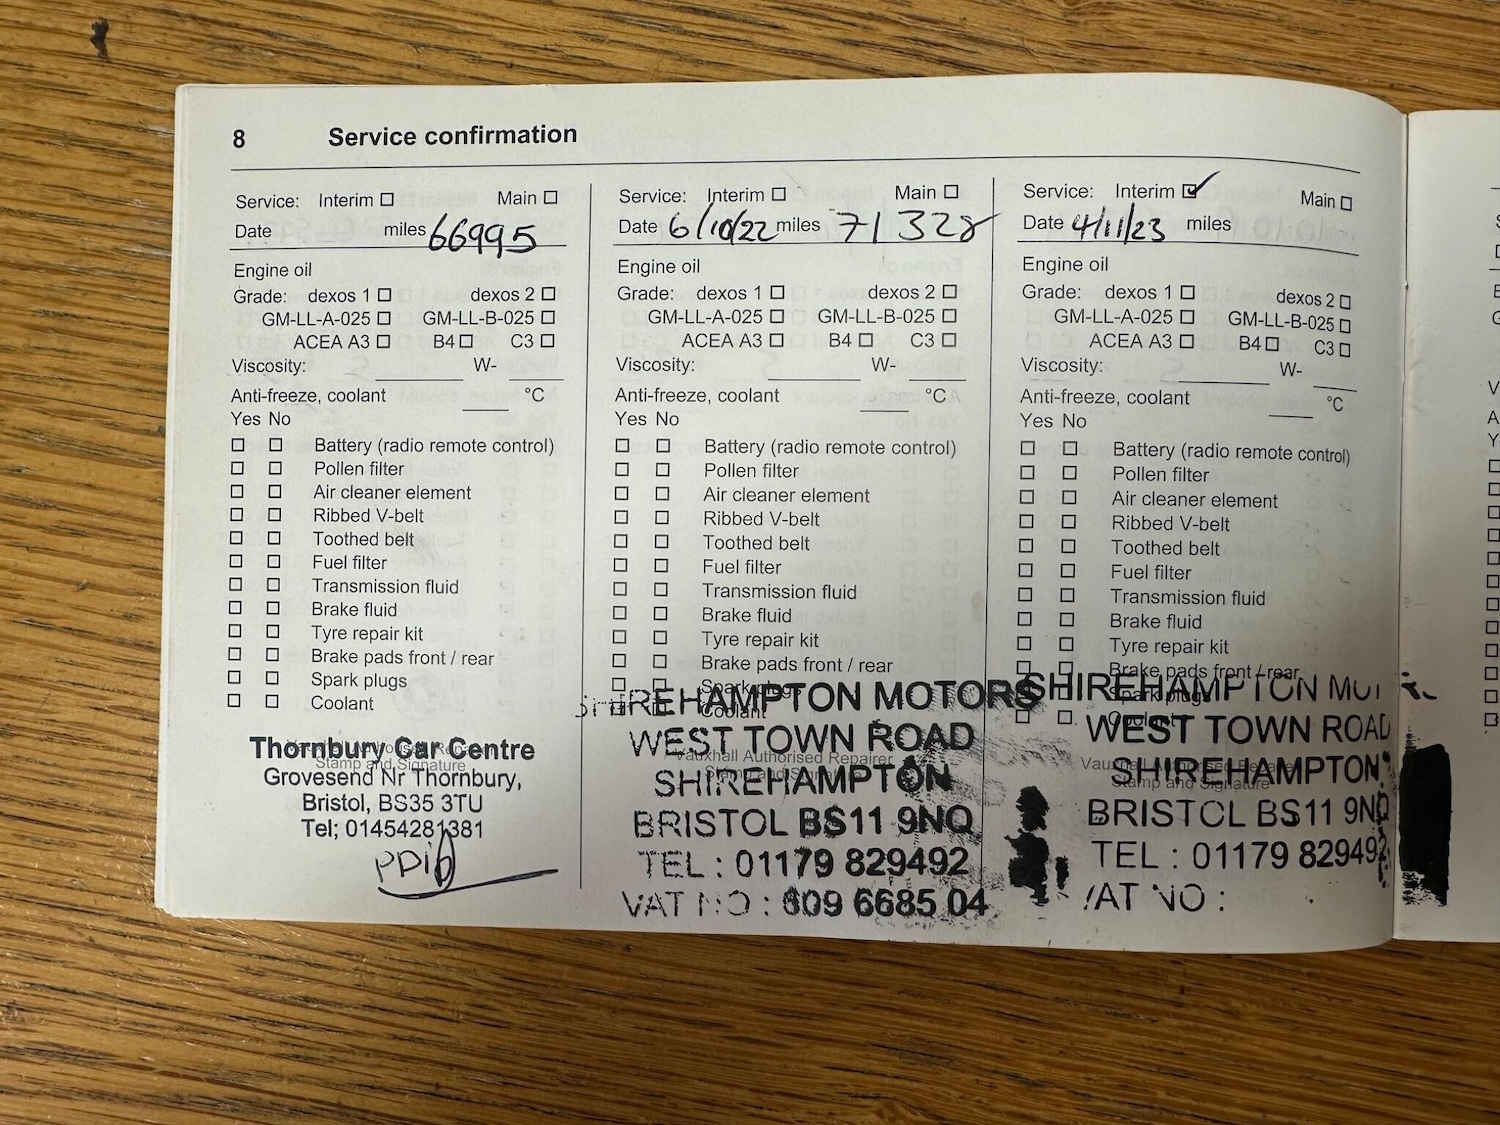 8 Service confirmation
Service: Interim Main
Date miles 66995
Engine oil
Grade: dexos 1 dexos 2
GM-LL-A-025 GM-LL-B-025
ACEA A3 B4 C3
Viscosity: W-
Anti-freeze, coolant °C
Yes No
Battery (radio remote control)
Pollen filter
Air cleaner element
Ribbed V-belt
Toothed belt
Fuel filter
Transmission fluid
Brake fluid
Tyre repair kit
Brake pads front / rear
Spark plugs
Coolant
Thornbury Car Centre
Stamp and Signature
Grovesend Nr Thornbury,
Bristol, BS35 3TU
Tel; 01454281381
Service: Interim Main
Date 6/10/22 miles 71328
Engine oil
Grade: dexos 1 dexos 2
GM-LL-A-025 GM-LL-B-025
ACEA A3 B4 C3
Viscosity: W-
Anti-freeze, coolant °C
Yes No
Battery (radio remote control)
Pollen filter
Air cleaner element
Ribbed V-belt
Toothed belt
Fuel filter
Transmission fluid
Brake fluid
Tyre repair kit
Brake pads front / rear
Spark plugs
SHIREHAMPTON MOTORS
Coolant
WEST TOWN ROAD
Vauxhall Authorised Repairer
SHIREHAMPTON
BRISTOL BS11 9NQ
TEL : 01179 829492
VAT NO : 609 6685 04
Service: Interim Main
Date 4/11/23 miles
Engine oil
Grade: dexos 1 dexos 2
GM-LL-A-025 GM-LL-B-025
ACEA A3 B4 C3
Viscosity: W-
Anti-freeze, coolant °C
Yes No
Battery (radio remote control)
Pollen filter
Air cleaner element
Ribbed V-belt
Toothed belt
Fuel filter
Transmission fluid
Brake fluid
Tyre repair kit
Brake pads front / rear
SHIREHAMPTON
Spark plugs
Coolant
WEST TOWN ROAD
SHIREHAMPTON
Stamp and Signature
BRISTOL BS11 9NQ
TEL : 01179 829492
VAT NO :